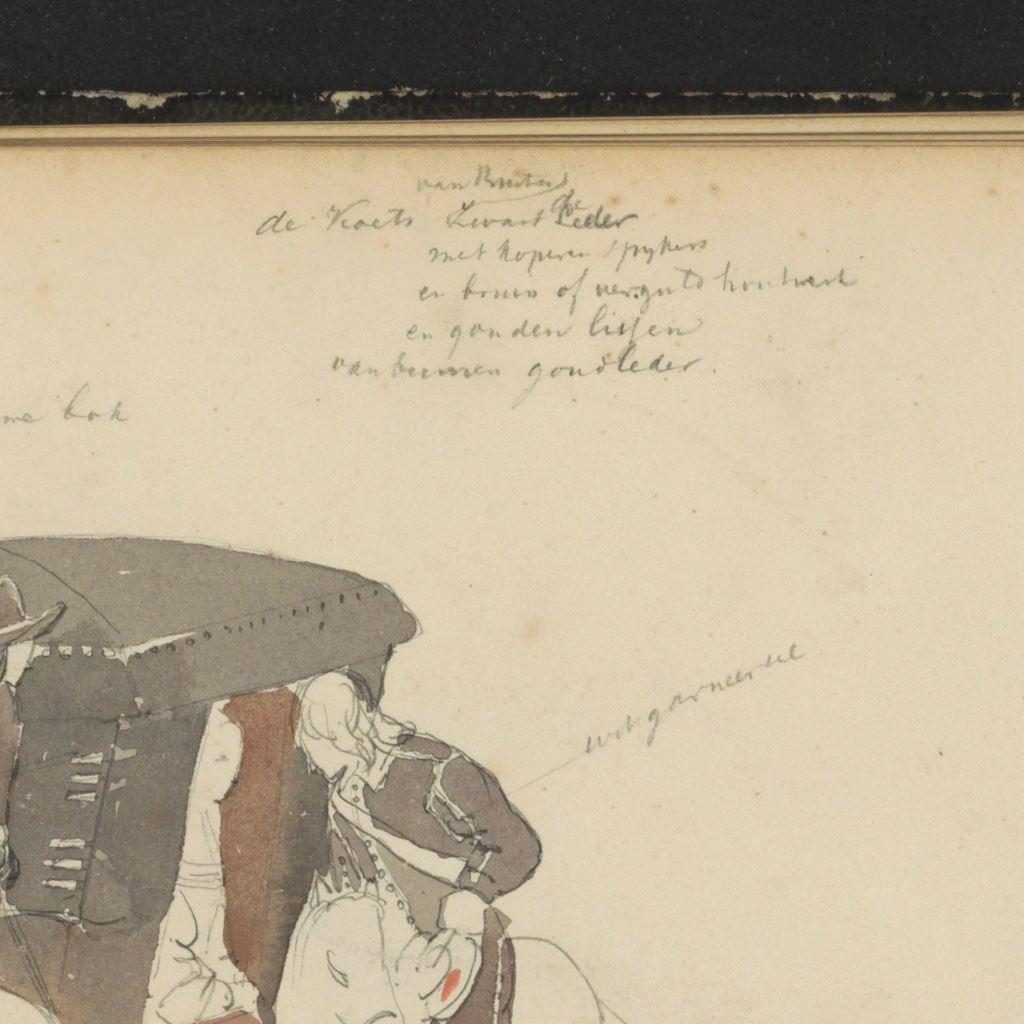 van Buiten
de Koets Zwart Leder
met koperen spykers
en bruin of verguld houtwerk
en gouden lissen
van binnen goudleder.
bok
wit garneersel